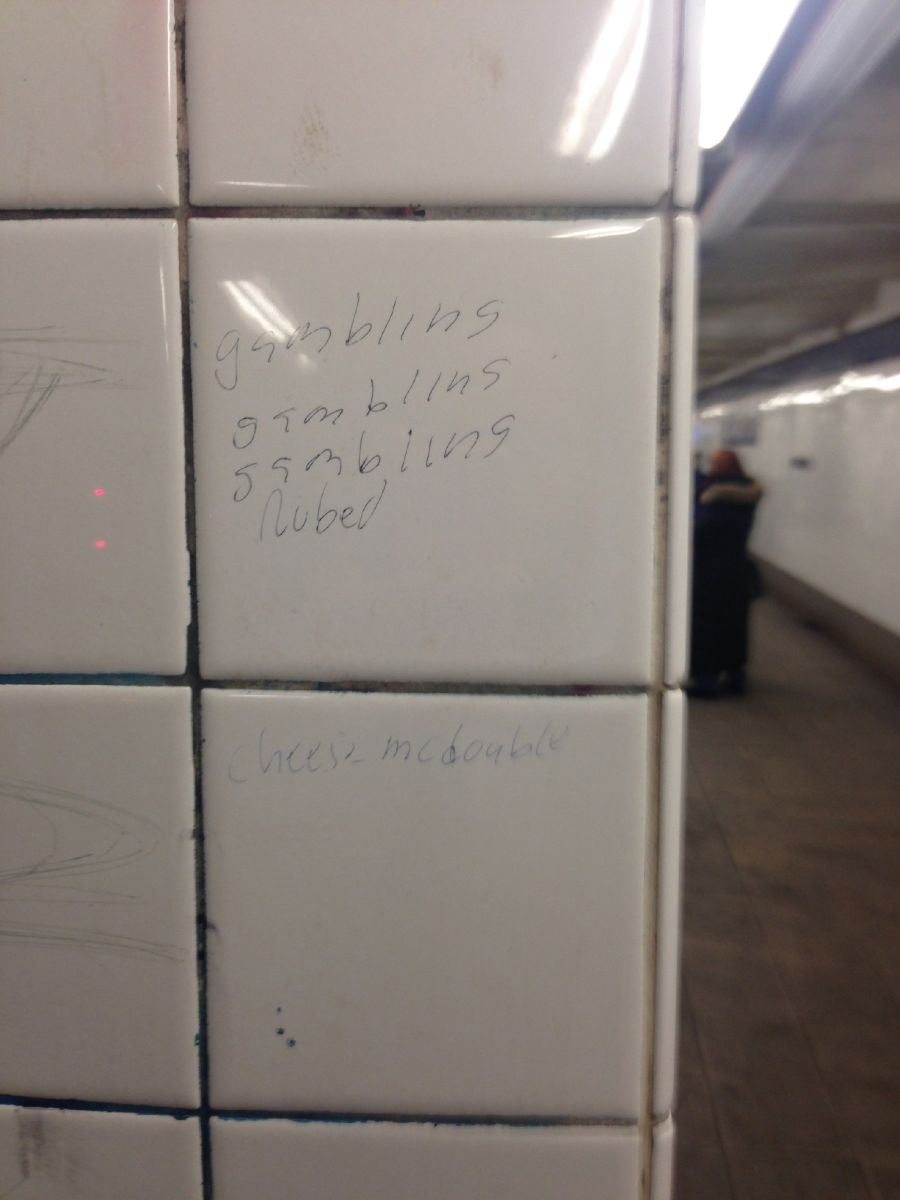 gambling
gambling
gambling
Rubed
cheese mcdouble